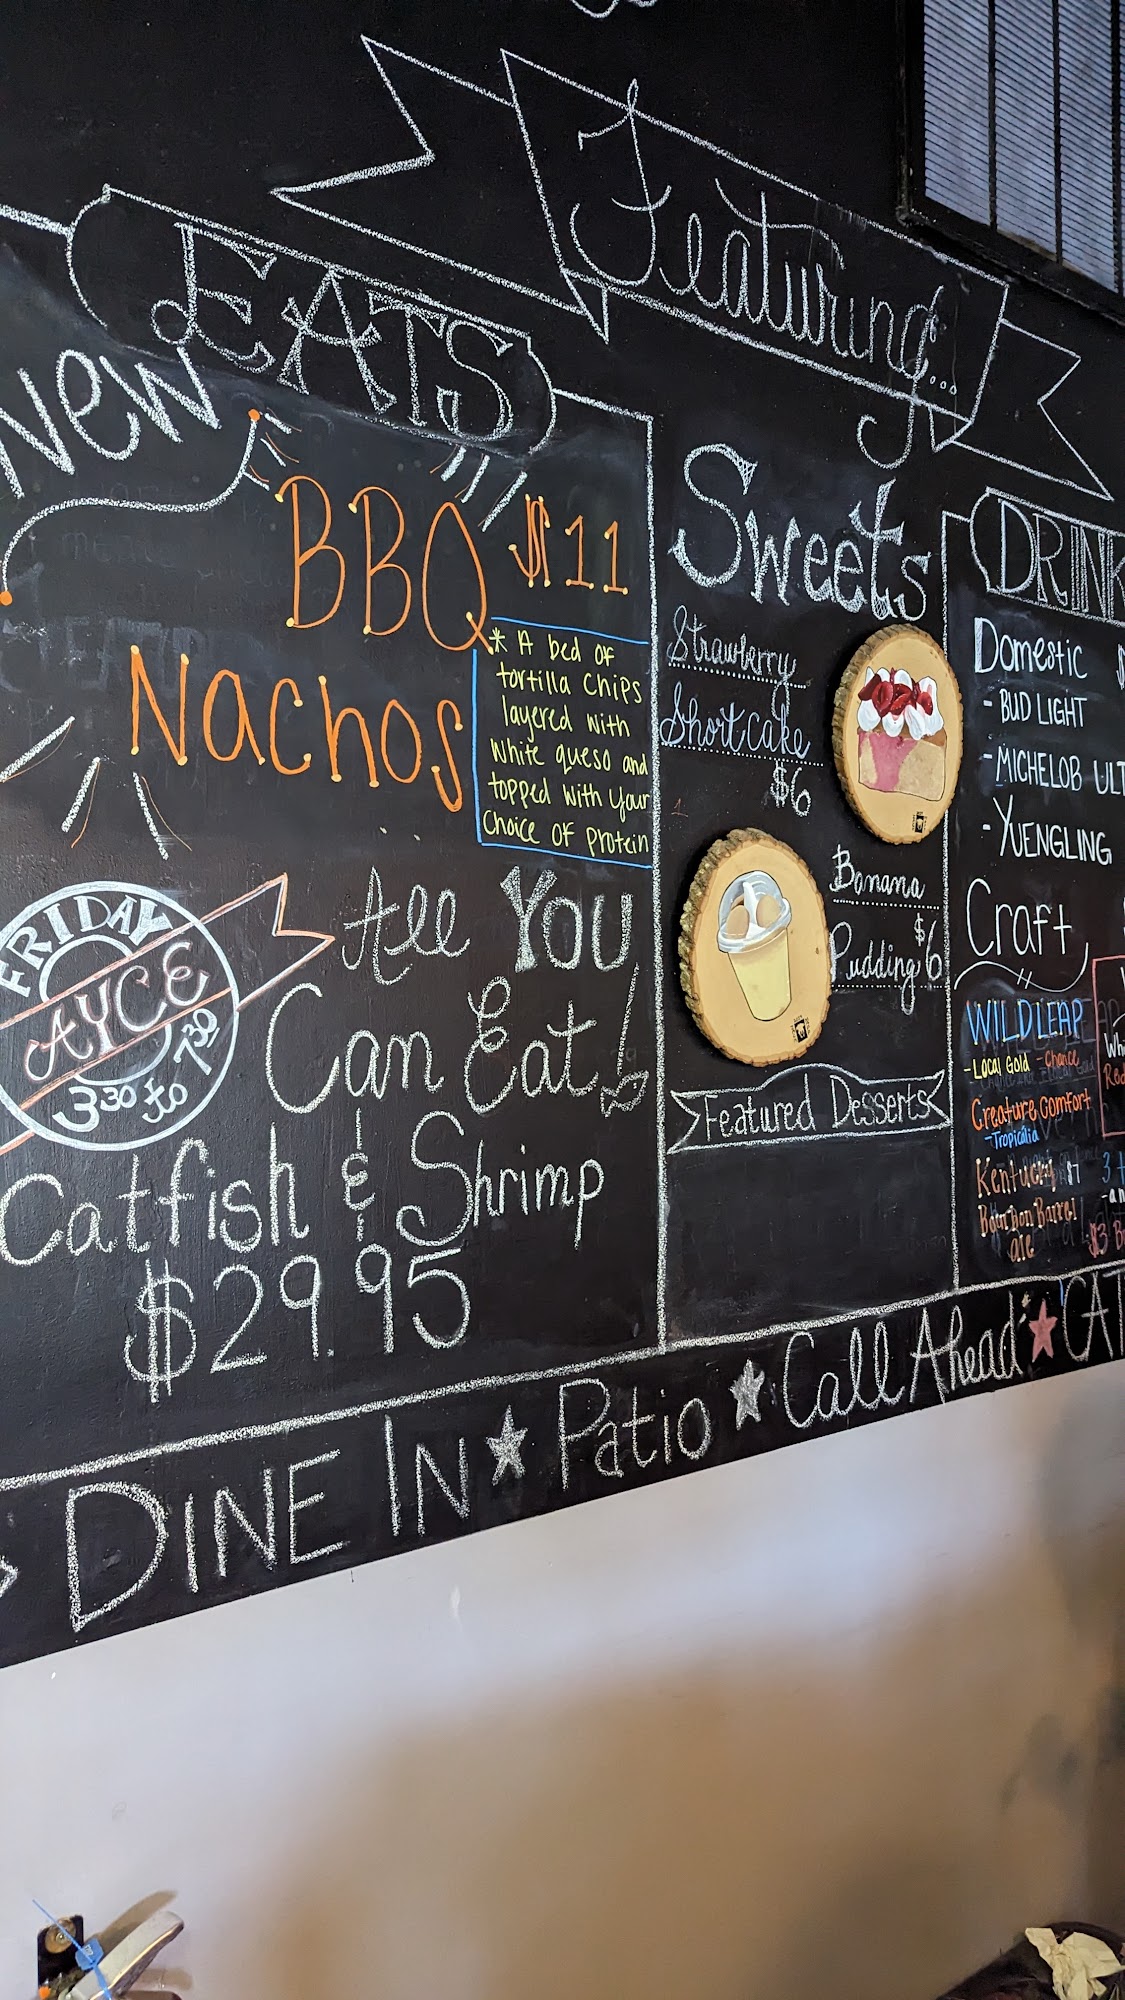 Featuring...
EATS
New
BBQ $11
Nachos
* A bed of
tortilla chips
layered with
white queso and
topped with your
choice of protein
FRIDAY
AYCE
3:30 to 7:30
All You
Can Eat!
Catfish & Shrimp
$29.95
Sweets
Strawberry
Shortcake
$6
Banana
Pudding $6
Featured Desserts
DRINK
Domestic $
- BUD LIGHT
- MICHELOB ULT
- YUENGLING
Craft
WILDLEAP
- Local Gold - Chance
Creature Comfort
- Tropicalia
Kentucky
Bourbon Barrel
ale
Wh
Red
3
- an
$3 B
DINE IN ★ Patio ★ Call Ahead ★ CAT